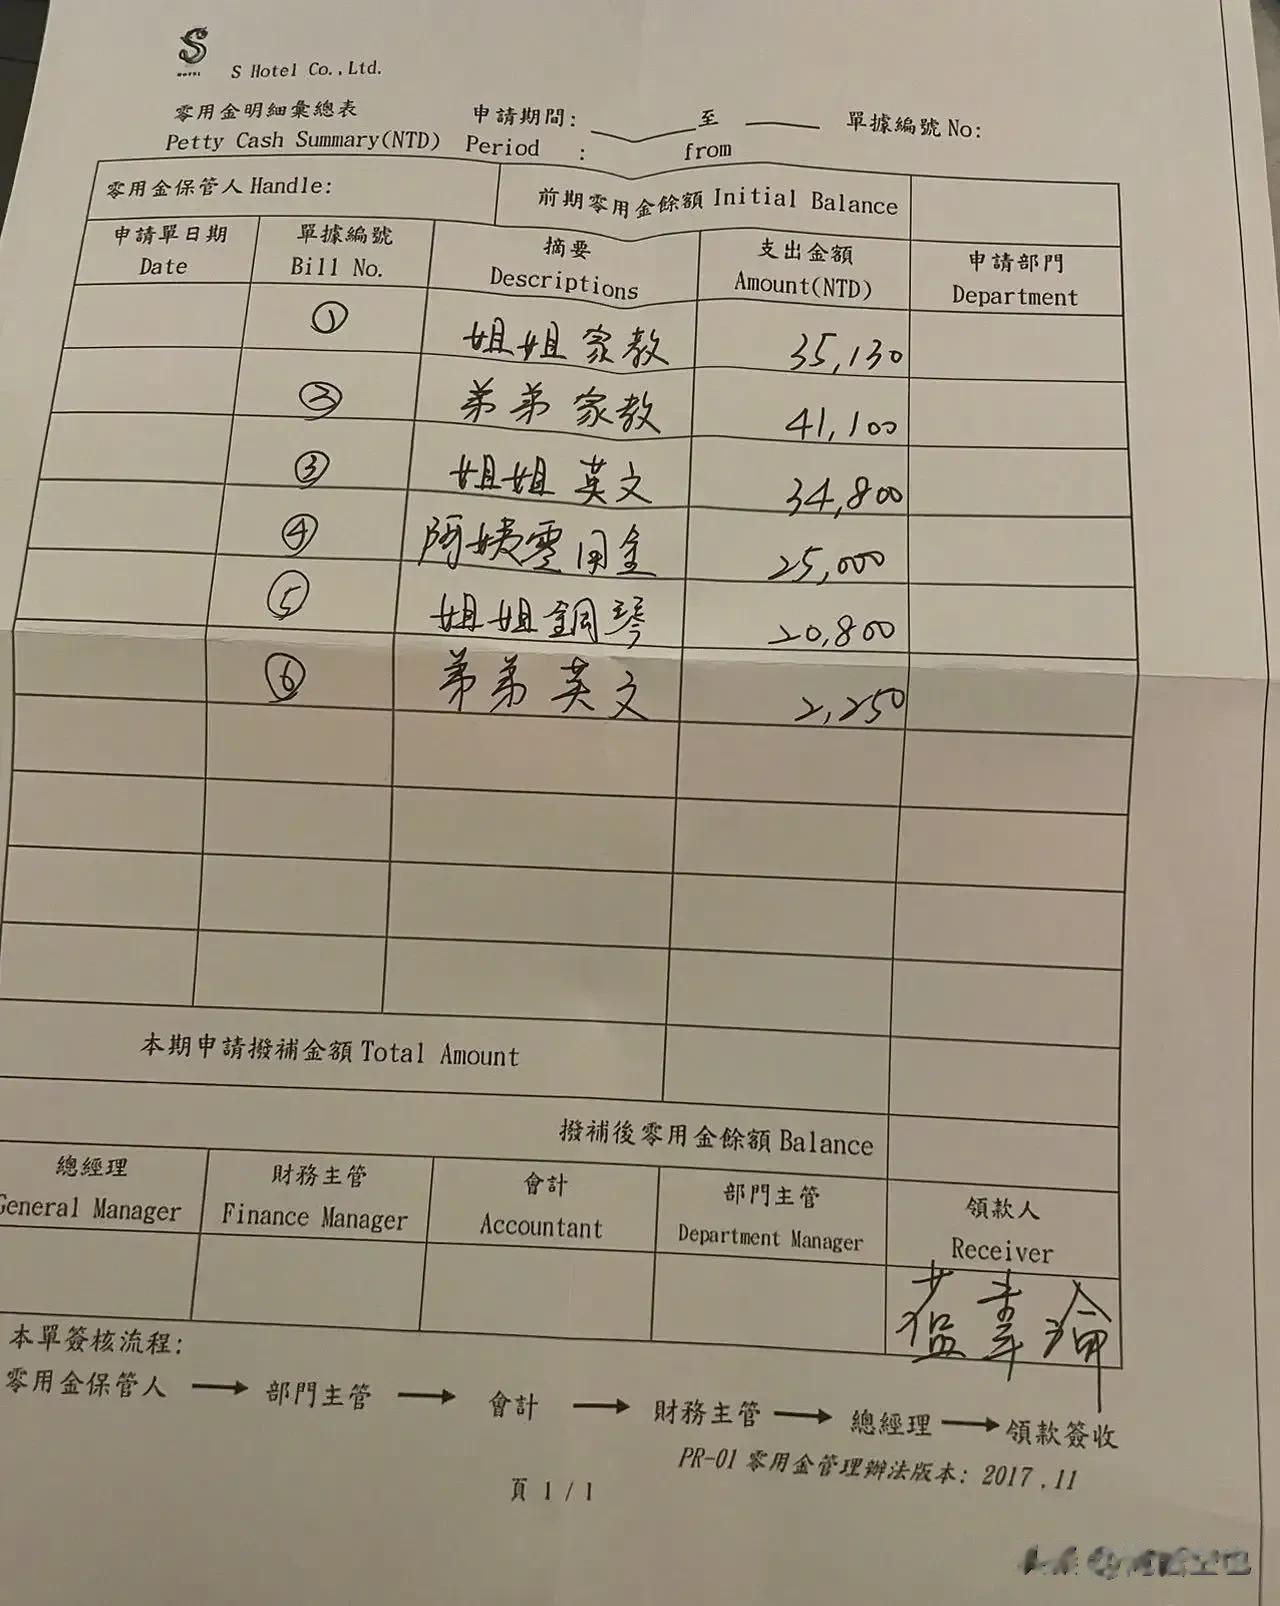 S
HOTEL
S Hotel Co.,Ltd.
零用金明細彙總表 申請期間: 至 單據編號 No:
Petty Cash Summary(NTD) Period : from
零用金保管人 Handle: 前期零用金餘額 Initial Balance
申請單日期 單據編號 摘要 支出金額 申請部門
Date Bill No. Descriptions Amount(NTD) Department
① 姐姐家教 35,130
② 弟弟家教 41,100
③ 姐姐英文 34,800
④ 阿姨零用金 25,000
⑤ 姐姐鋼琴 20,800
⑥ 弟弟英文 2,250
本期申請撥補金額 Total Amount
撥補後零用金餘額 Balance
總經理 財務主管 會計 部門主管 領款人
General Manager Finance Manager Accountant Department Manager Receiver
本單簽核流程:
零用金保管人 → 部門主管 → 會計 → 財務主管 → 總經理 → 領款簽收
PR-01 零用金管理辦法版本: 2017.11
頁 1 / 1